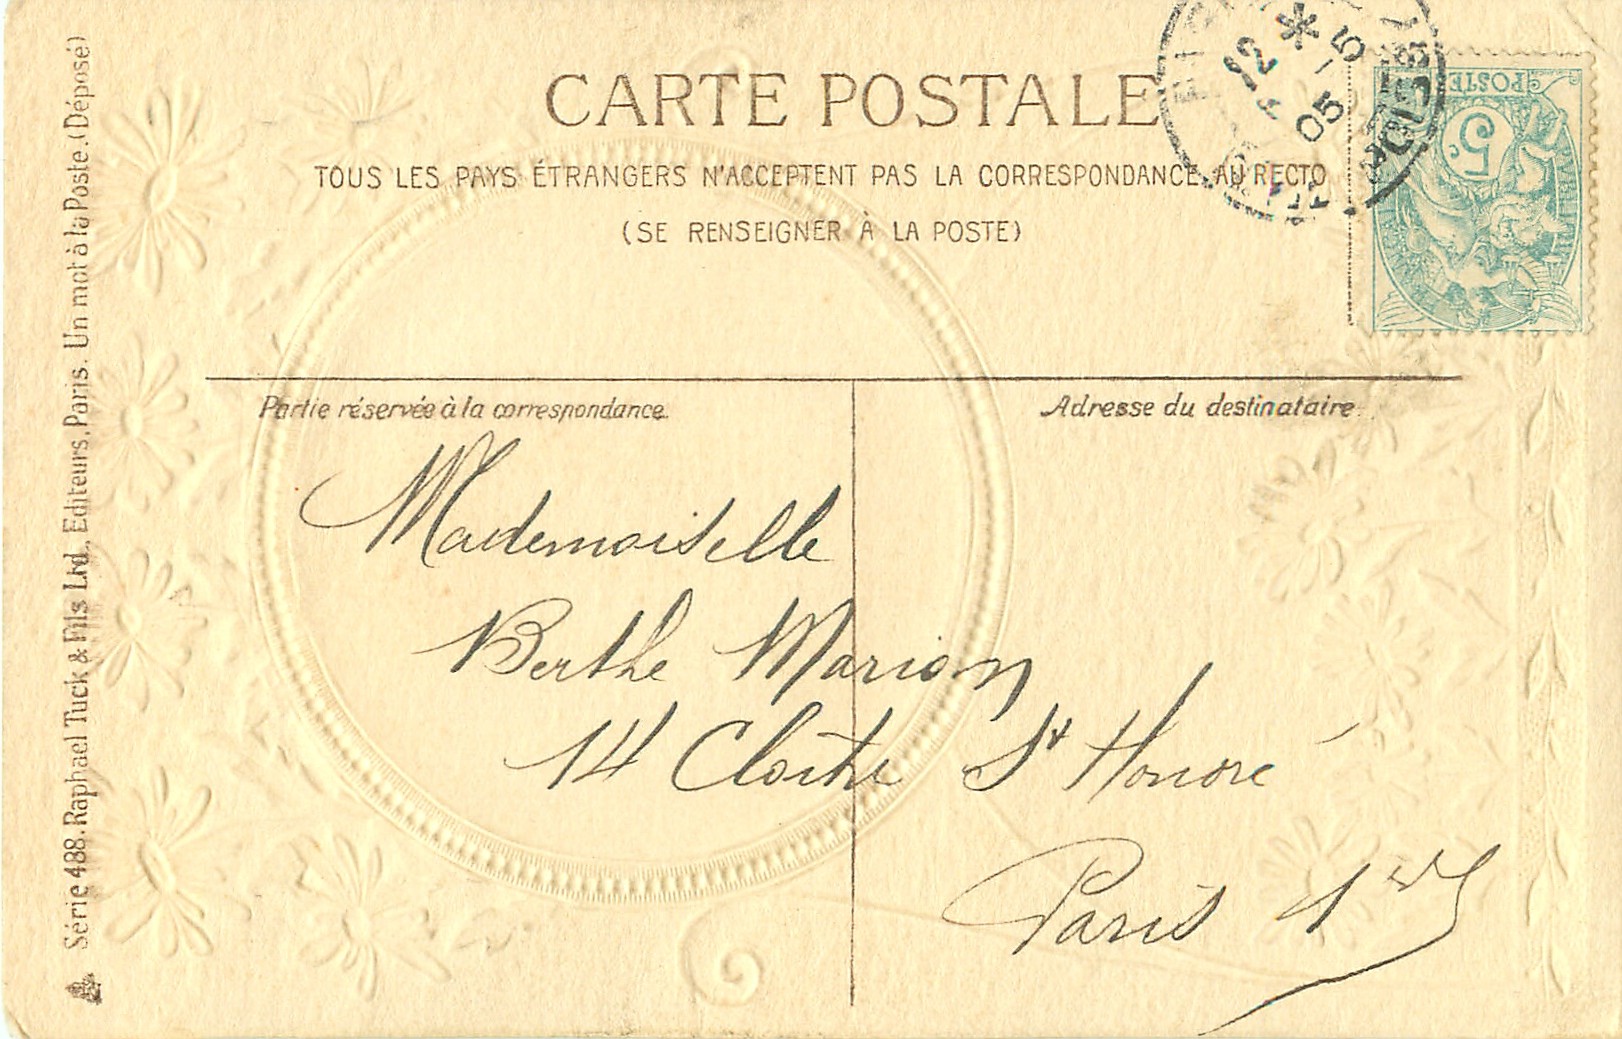 CARTE POSTALE
TOUS LES PAYS ÉTRANGERS N'ACCEPTENT PAS LA CORRESPONDANCE AU RECTO
(SE RENSEIGNER À LA POSTE)
Partie réservée à la correspondance
Adresse du destinataire
Mademoiselle
Berthe Marion
14 Cloître St Honoré
Paris 1er
Série 488. Raphael Tuck & Fils Ltd., Editeurs, Paris. Un mot à la Poste. (Déposé)
12 * 5
05
5
POSTE